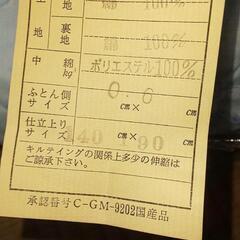 地 綿 100%
地 裏地 綿 100%
中綿 kg ポリエステル100%
0.6
ふとん側サイズ cm× cm
cm× cm
仕立上りサイズ 140 190
キルテイングの関係上多少の伸縮は
ご諒承下さい。
承認番号C-GM-9202国産品